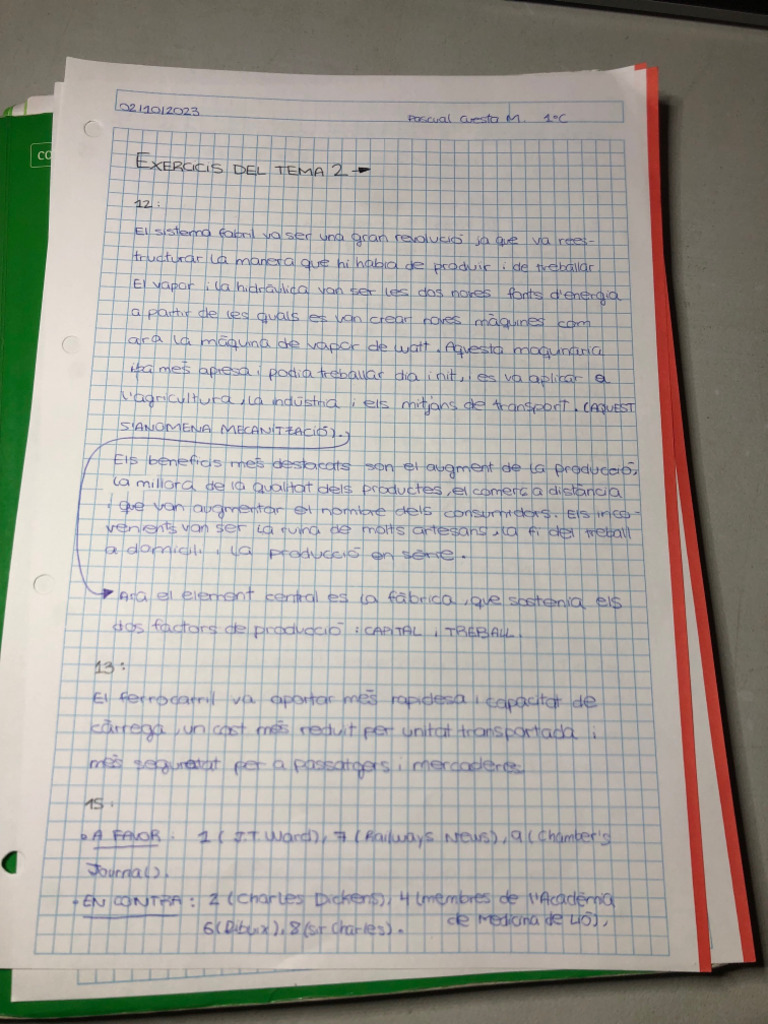 CO
02/10/2023
Pascual Cuesta M. 1ºC
EXERCICIS DEL TEMA 2 →
12:
El sistema fabril va ser una gran revolució ja que va rees-
tructurar la manera que hi habia de produir i de treballar
El vapor i la hidràulica van ser les dos noves fonts d'energia
a partir de les quals es van crear noves màquines com
ara la màquina de vapor de Watt. Aquesta maquinària
més apresa i podia treballar dia i nit, i es va aplicar a
l'agricultura, la indústria i els mitjans de transport. (AQUEST
S'ANOMENA MECANITZACIÓ).
Els beneficis més destacats son el augment de la producció,
la millora de la qualitat dels productes, el comerç a distància
i que van augmentar el nombre dels consumidors. Els inco-
venients van ser la ruina de molts artesans, la fi del treball
a domicili i la producció en serie.
Ara el element central es la fàbrica, que sostenia els
dos factors de producció: CAPITAL i TREBALL.
13:
El ferrocarril va aportar més rapidesa i capacitat de
càrrega, un cost més reduit per unitat transportada i
més seguretat per a passatgers i mercaderes
15:
• A FAVOR: 1 (J.T. Ward), 7 (Railways News), 9 (Chamber's
Journal).
• EN CONTRA: 2 (Charles Dickens), 4 (membres de l'Acadèmia
de Medicina de Lió),
6 (Dibuix), 8 (sir Charles).